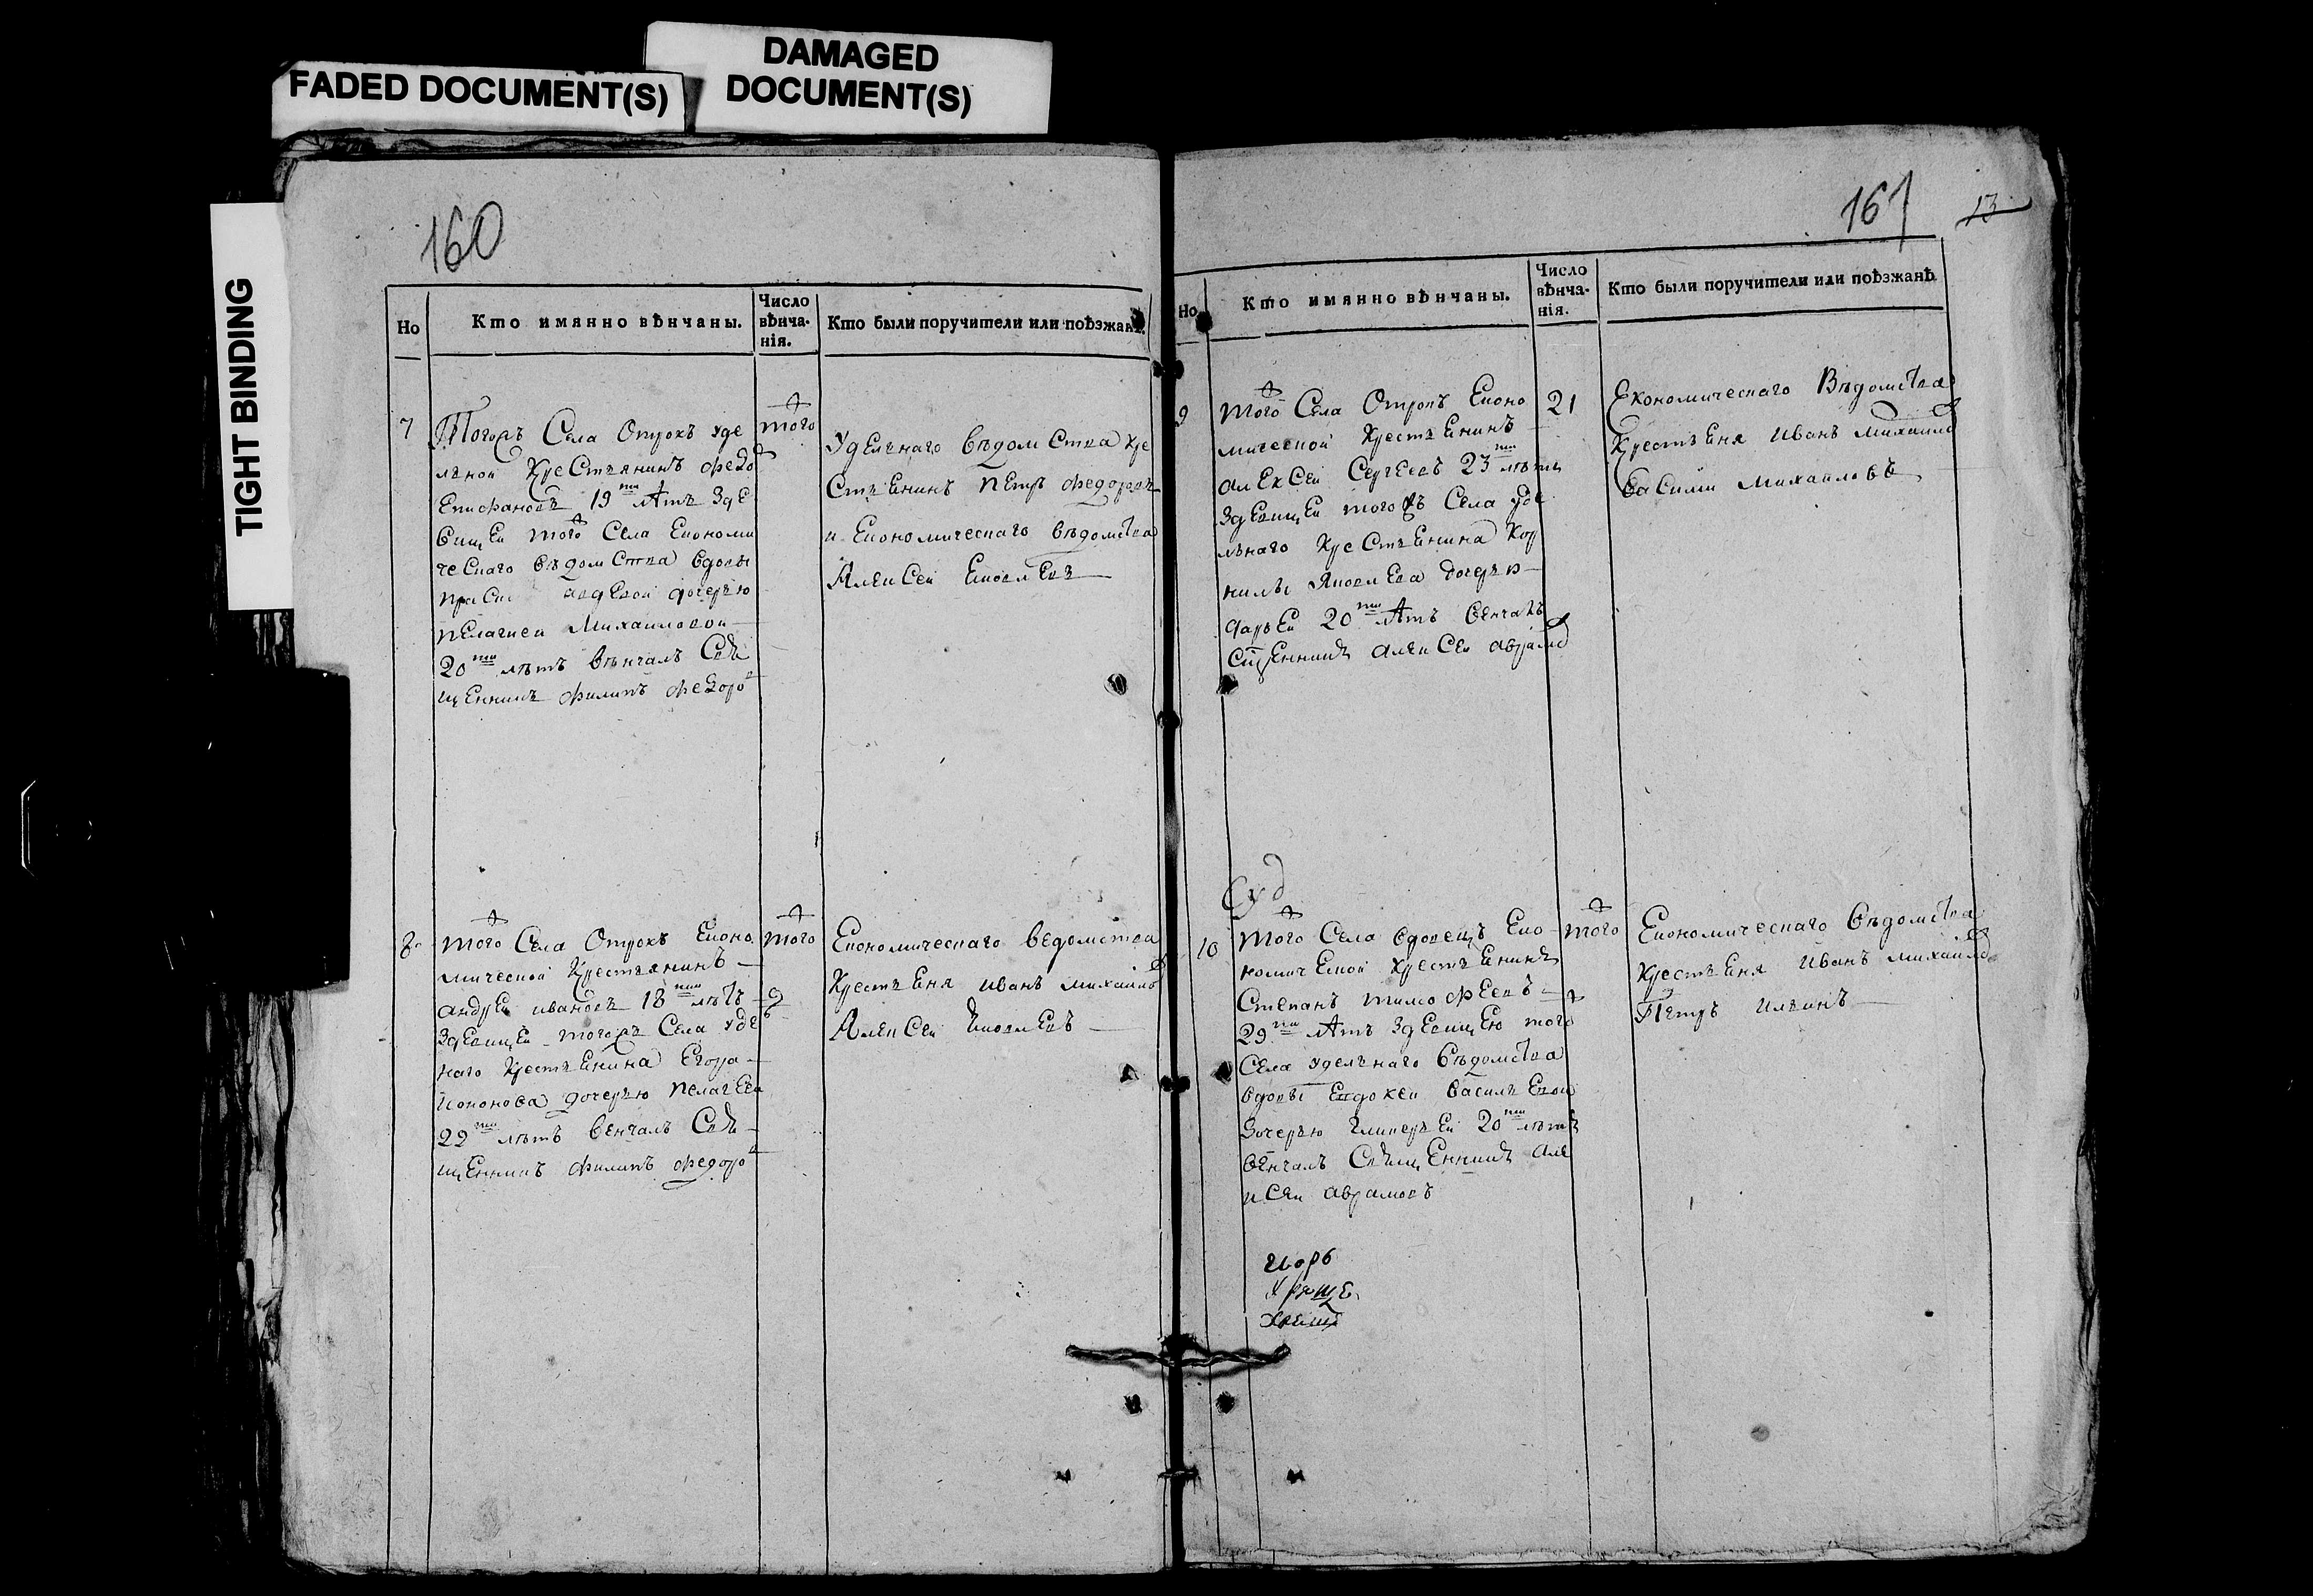 FADED DOCUMENT(S)
DAMAGED
DOCUMENT(S)
TIGHT BINDING
160
Но
Кто имянно вѣнчаны.
Число
вѣнча-
нія.
Кто были поручители или поѣзжанѣ.
7
Тогожъ Села Отрокъ уде
льной крестьянинъ федо
Епифановъ 19 ти лѣтъ здѣ
вицеи того Села Економи
ческаго вѣдомства вдовы
авдеевой дочерью
пелагиеи Михаиловои
20 ти лѣтъ вѣнчалъ Свя
щенникъ филипъ федоро
того
Удельнаго вѣдомства кре
стьенинъ петръ федоровъ
и Економическаго вѣдомства
Алексеи Яковлевъ
8
того Села Отрокъ Еконо
мическои крестьянинъ
андреи ивановъ 18 ти лѣтъ
здевицеи тогожъ Села уде
наго крестьенина Егора
дочерью пелагеею
22 ти лѣтъ венчалъ Свя
щенникъ филипъ федоро
того
Економическаго ведомства
крестьеня иванъ михаило
Алексеи Яковлевъ
161
13
Но
Кто имянно вѣнчаны.
Число
вѣнча-
нія.
Кто были поручители или поѣзжанѣ
9
того Села Отрокъ Еконо
мическои крестьенинъ
алексеи Сергеевъ 23 ти лѣтъ
здевицеи тогожъ Села уде
льнаго крестьенина кор
нилы яковлева дочерью
дарьеи 20 ти лѣтъ венчалъ
сщенникъ алексеи аврамо
21
Економическаго Вѣдомства
крестьеня иванъ михаило
василии михаиловъ
10
того Села вдовецъ Еко
номическои крестьенинъ
Степанъ тимофеевъ
29 ти лѣтъ здевицею того
Села удельнаго вѣдомства
вдовы Евдокеи васильевои
дочерью гликерьеи 20 ти лѣтъ
венчалъ Священникъ але
ксеи аврамовъ
того
Економическаго вѣдомства
крестьеня иванъ михаило
Петръ ильинъ